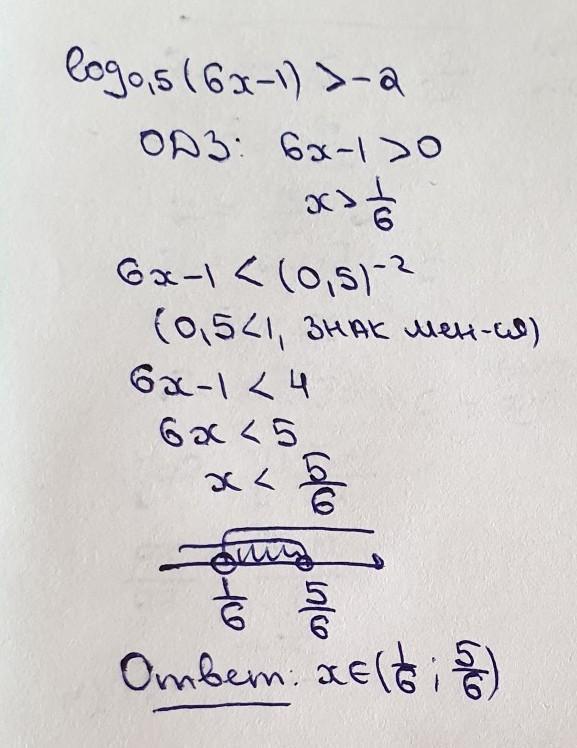 log0,5(6x-1) >-2
ОДЗ: 6x-1>0
x> 1/6
6x-1 < (0,5)^-2
(0,5<1, знак мен-ся)
6x-1 < 4
6x < 5
x < 5/6
1/6 5/6
Ответ: x∈(1/6; 5/6)